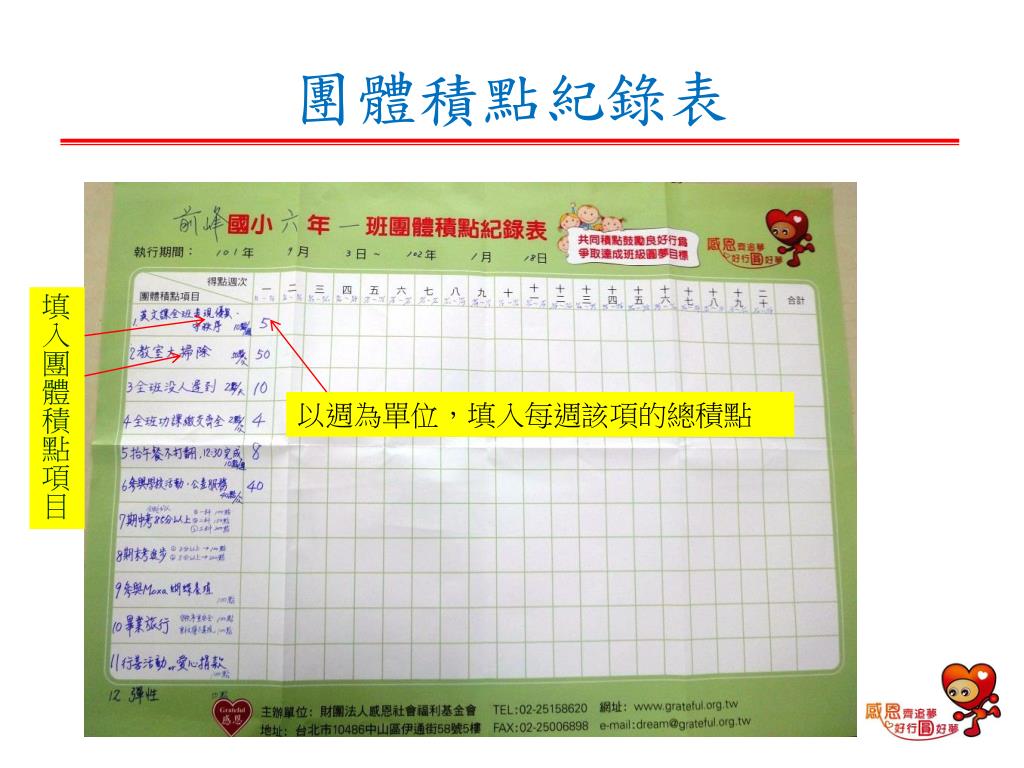 團體積點紀錄表
前峰國小六年一班團體積點紀錄表
執行期間： 101年 9月 3日～ 102年 1月 18日
共同積點鼓勵良好行為
爭取達成班級圓夢目標
感恩齊追夢
好行圓好夢
得點週次
團體積點項目
一 二 三 四 五 六 七 八 九 十 十一 十二 十三 十四 十五 十六 十七 十八 十九 二十 合計
填入團體積點項目
1.英文課全班表現優異、
守秩序 5
2教室大掃除 50
3全班沒人遲到 2點/天 10
4全班功課繳交齊全 2點/次 4
以週為單位，填入每週該項的總積點
5抬午餐不打翻,12:30完成 8
6參與學校活動、公益服務 40
7期中考85分以上
8期末考進步
9參與Moxa蝴蝶養殖
10畢業旅行
11行善活動or愛心捐款
12 彈性
Grateful
感恩
主辦單位：財團法人感恩社會福利基金會 TEL:02-25158620 網址：www.grateful.org.tw
地址：台北市10486中山區伊通街58號5樓 FAX:02-25006898 e-mail:dream@grateful.org.tw
感恩齊追夢
好行圓好夢